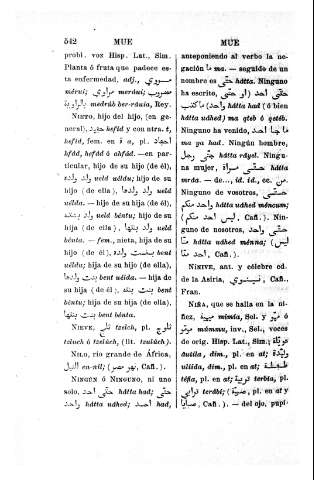 542 MUE MUE
probl. voz Hisp. Lat., Sim.
Planta ó fruta que padece es-
ta enfermedad, adj.,
NIETO, hijo del hijo, (en ge-
neral), حفيد hefíd y con ntra. t,
hefíd, fem. en i a, pl. احفاد
hfád, hefád ó ahfád. —en par-
ticular, hijo de su hijo (de él),
ولد ولده uld uéldu; hijo de su
hijo (de ella), ولد ولدها uld
uélda. — hijo de su hija (de él),
ولد بنته uld béntu; hijo de su
hija (de ella), ولد بنتها uld
bénta. — fem., nieta, hija de su
hijo (de él), بنت ولده bent
uéldu; hija de su hijo (de ella),
بنت ولدها bent uélda. — hija de
su hija (de él), بنت بنته bent
béntu; hija de su hija (de ella),
بنت بنتها bent bénta.
NIEVE, ثلج tzelch, pl. ثلوج
tzluch ó tzelúch, (lit. tzulúch).
NILO, rio grande de África,
النيل en-nil; (نهر مصر, Cañ.).
NINGÚN Ó NINGUNO, ni uno
solo, حتى احد hátta had; حتى
واحد hátta udhed; احد had,
anteponiendo al verbo la ne-
gación ما ma. — seguido de un
nombre es حتى hátta. Ninguno
ha escrito, حتى احد (او حتى
واحد) ماكتب hátta had (ó bien
hátta udhed) ma qteb ó qetéb.
Ninguno ha venido, ما جا احد
ma ya had. Ningún hombre,
حتى رجل hátta ráyel. Ningu-
na mujer, حتى مراة hátta
mrda. — de..., id. id., ce. من.
Ninguno de vosotros, حتى
واحد منكم hátta udhed méncum;
(ليس احد منكم, Cañ.). Nin-
guno de nosotros, حتى واحد
منا hátta udhed ménna; (ليس
احد منا, Cañ.).
NÍNIVE, ant. y célebre ed.
de la Asiria, نينوى, Cañ.,
Fran.
NIÑA, que se halla en la ni-
ñez, mimia, Sel. y
ó múmmu, inv., Sel., voces
de orig. Hisp. Lat., Sim.;
auíla, dim., pl. en at;
uliida, dim., pl. en at; طفلة
téfla, pl. en at; تربية terbia, pl.
ترابي terábi; (صبية, pl. en at ó
صبايا, Cañ.). — del ojo, pupi-